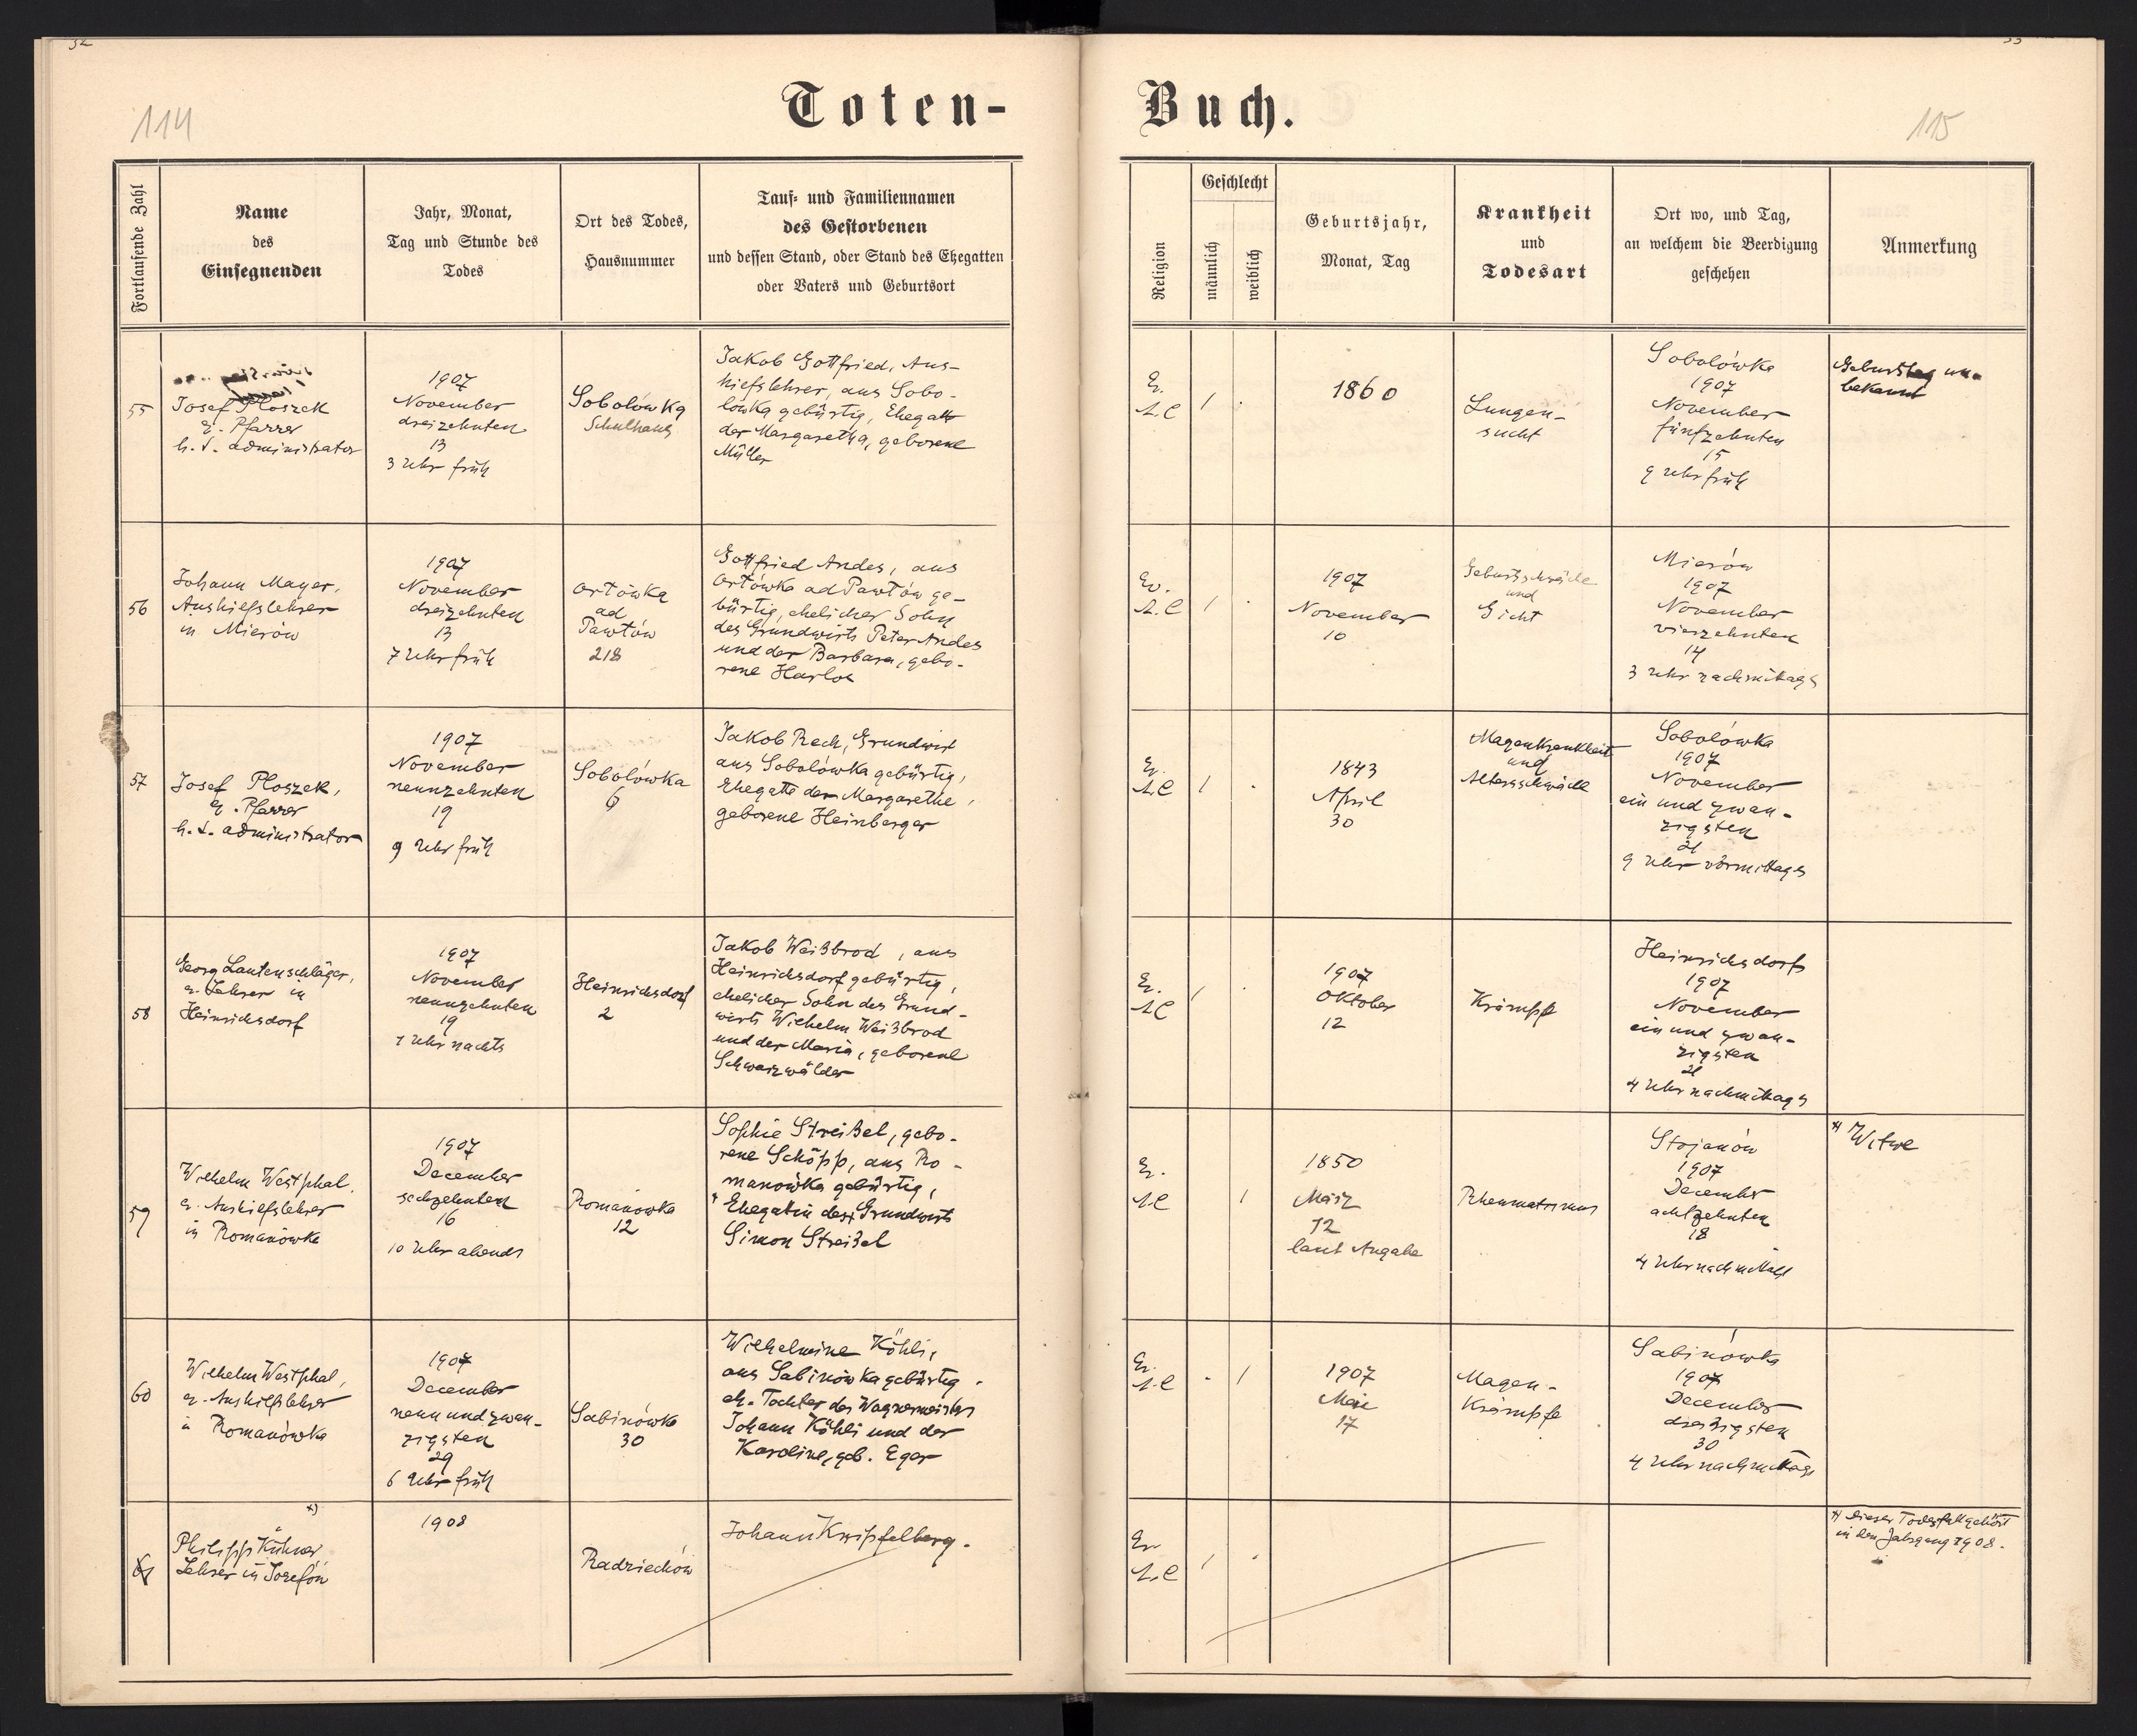 114
Toten-
Buch.
115
Fortlaufende Zahl
Name
des
Einsegnenden
Jahr, Monat,
Tag und Stunde des
Todes
Ort des Todes,
Hausnummer
Tauf- und Familiennamen
des Gestorbenen
und dessen Stand, oder Stand des Ehegatten
oder Vaters und Geburtsort
Religion
Geschlecht
männlich
weiblich
Geburtsjahr,
Monat, Tag
Krankheit
und
Todesart
Ort wo, und Tag,
an welchem die Beerdigung
geschehen
Anmerkung
55
Josef Ploszek
ev. Pfarrer
h. t. administrator
1907
November
dreizehnten
13
3 Uhr früh
Sobolówka
Schulhaus
Jakob Gottfried, Aus-
hilfslehrer, aus Sobo-
lówka gebürtig, Ehegatte
der Margaretha, geborene
Müller
Ev.
A.C
1
1860
Lungen-
sucht
Sobolówka
1907
November
fünfzehnten
15
9 Uhr früh
Geburtstag un-
bekannt
56
Johann Mayer,
Aushilfslehrer
in Mierów
1907
November
dreizehnten
13
7 Uhr früh
ad
218
Gottfried Andes, aus
ge-
bürtig, ehelicher Sohn
des Grundwirts Peter Andes
und der Barbara, gebo-
rene
Ev.
A.C
1
1907
November
10
Geburtsschwäche
und
Gicht
Mierów
1907
November
vierzehnten
14
3 Uhr nachmittags
57
Josef Ploszek,
ev. Pfarrer
h. t. administrator
1907
November
neunzehnten
19
9 Uhr früh
Sobolówka
6
Jakob Rech, Grundwirt
aus Sobolówka gebürtig,
Ehegatte der Margarethe,
geborene Heinberger
Ev.
A.C
1
1843
April
30
Magenkrankheit
und
Altersschwäche
Sobolówka
1907
November
ein und zwan-
zigsten
21
9 Uhr vormittags
58
Georg Lautenschläger,
ev. Lehrer in
Heinrichsdorf
1907
November
neunzehnten
19
1 Uhr nachts
Heinrichsdorf
2
Jakob Weißbrod, aus
Heinrichsdorf gebürtig,
ehelicher Sohn des Grund-
wirts Wilhelm Weißbrod
und der Maria, geborene
Schwarzwälder
Ev.
A.C
1
1907
Oktober
12
Krämpfe
Heinrichsdorf
1907
November
ein und zwan-
zigsten
21
4 Uhr nachmittags
59
Wilhelm Westphal,
ev. Aushilfslehrer
in Romanówka
1907
December
sechzehnten
16
10 Uhr abends
Romanówka
12
Sophie Streißel, gebo-
rene Schöpp, aus Ro-
manówka gebürtig,
Ehegatin des Grundwirts
Simon Streißel
Ev.
A.C
1
1850
März
12
laut Angabe
Rheumatismus
Stojanów
1907
December
achtzehnten
18
4 Uhr nachmittags
*) Witwe
60
Wilhelm Westphal,
ev. Aushilfslehrer
in Romanówka
1907
December
neun und zwan-
zigsten
29
6 Uhr früh
Sabinówka
30
Wilhelmine Köhli,
aus Sabinówka gebürtig.
eh. Tochter des Wagnermeisters
Johann Köhli und der
Karoline, geb. Eger
Ev.
A.C
1
1907
Mai
17
Magen-
Krämpfe
Sabinówka
1907
December
dreißigsten
30
4 Uhr nachmittags
61
*)
Philipp Kühner
Lehrer in Józefów
1908
Radziechów
Johann Kripfelberg.
Ev.
A.C
1
*) Dieser Todesfall gehört
in den Jahrgang 1908.